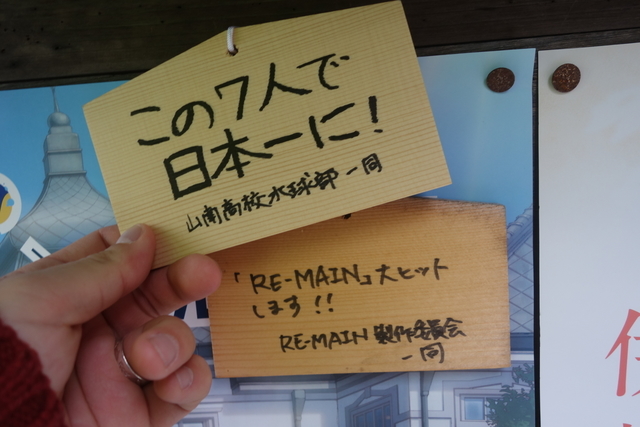 この7人で
日本一に!
山南高校水球部一同
「RE-MAIN」大ヒット
します!!
RE-MAIN 製作委員会
一同